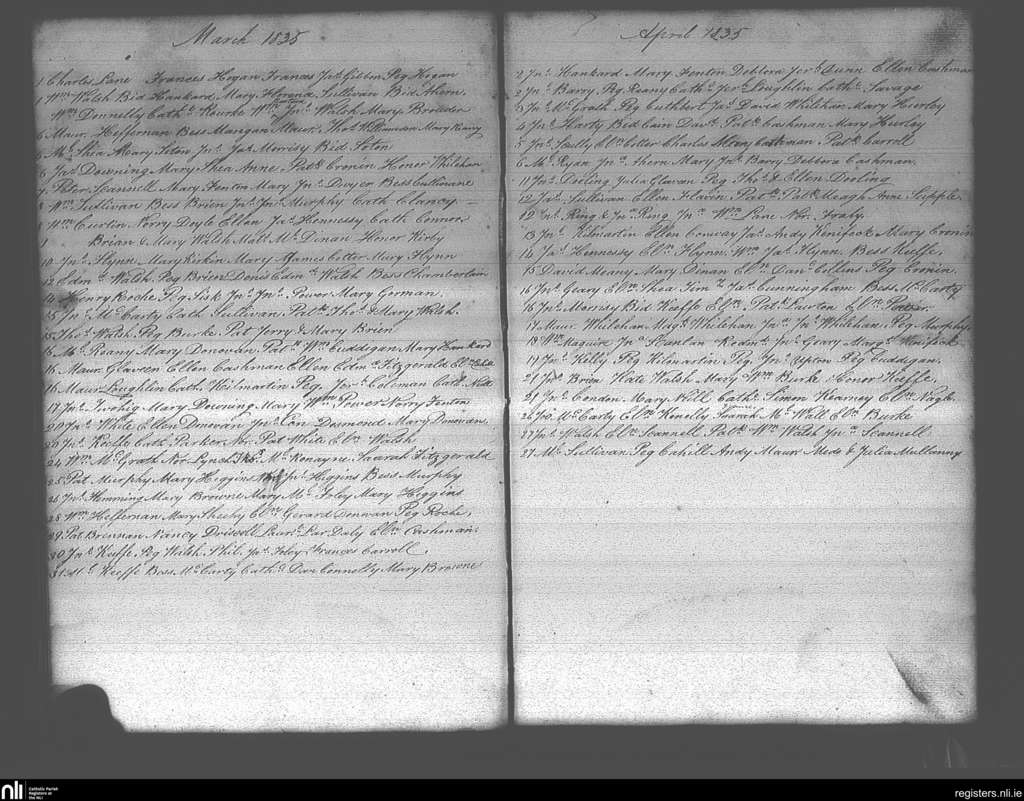 March 1835
1 Charles Lane Frances Hogan Frances Jas. Gibbon Peg Hogan
1 Wm Walsh Bid Hankard Mary Florence Sullivan Bid Ahern
Wm Donnelly Cath. Rourke Wm Jno. Walsh Mary Browder
6 Maur. Heffernan Bess Mangan Maur. Thos. Mary Reary
6 Ml. Shea Mary Seton Jno. Jas. Morrisy Bid Seton
6 Jas. Downing Mary Shea Anne Patk. Cronin Honor Whilehan
7 Peter Scannell Mary Fenton Mary Jno. Dwyer Bess Cullinane
8 Wm. Sullivan Bess Brien Jno. Jno. Murphy Cath Clancy
8 Wm Curtin Norry Doyle Ellen Jas. Hennessy Cath Connor
Brian & Mary Walsh Matt. Ml. Dinan Honor Kirby
10 Jno. Flynn Mary Kirkin Mary James Cotter Mary Flynn
12 Edmd. Walsh Peg Brien Denis Edmd. Walsh Bess Chamberlain
14 Henry Roche Peg Sisk Jno. Jno. Power Mary Gorman
15 Jno. McCarty Cath Sullivan Patk. Thos. & Mary Walsh
15 Thos. Walsh Peg Burke Pat Jerry & Mary Brien
15 Ml. Reany Mary Donovan Patk. Wm. Cuddigan Mary Hankard
16 Maur. Glaveen Ellen Cashman Ellen Edmd. Fitzgerald
16 Maur. Loughlin Cath. Kilmartin Peg Jno. Coleman Cath.
17 Jno. Twohig Mary Downing Mary Wm. Power Norry Fenton
20 Jas. White Ellen Donovan Jno. Con Desmond Mary Donovan
20 Jno. Keeffe Cath Parker Nor. Pat White Elln. Walsh
24 Wm. McGrath Nor Lynch Thos. Ml. Ronayne Sarah Fitzgerald
25 Pat Murphy Mary Higgins Jno. Higgins Bess Murphy
26 Jno. Hemming Mary Browne Mary Ml. Foley Mary Higgins
28 Wm. Heffernan Mary Sheehy Elln. Gerard Donovan Peg Roche
29 Pat Brennan Nancy Driscoll Laur. Lar Daly Elln. Cashman
30 Jas. Keeffe Peg Walsh Phil. Jno. Foley Frances Carroll
31 Ml. Keeffe Bess McCarty Cath. Dan Connolly Mary Browne
April 1835
2 Jno. Hankard Mary Fenton Debbora Jerh. Quinn Ellen Cashman
2 Jno. Barry Peg Reany Cath. Jer. Loughlin Cath. Savage
3 Jno. McGrath Peg Cuthbert Jno. David Whilehan Mary Hurley
4 Jno. Harty Bid Cain Davd. Patk. Cashman Mary Hurley
5 Jno. Scully Elln. Cotter Charles Cashman Patk. Carroll
6 Ml. Ryan Jno. Ahern Mary Jno. Barry Debbora Cashman
11 Jno. Dooling Julia Glavan Peg Thos. & Ellen Dooling
12 Jas. Sullivan Ellen Flavin Patk. Patk. Meagh Anne Supple
12 Ring & Jno. Ring Jno. Wm. Lane Nor. Fraly
13 Jno. Kilmartin Ellen Conway Jas. Andy Kenifeck Mary Cronin
14 Jas. Hennessy Elln. Flynn Wm. Jas. Flynn Bess Keeffe
15 David Meany Mary Dinan Elln. Danl. Collins Peg Cronin
16 Jno. Geary Elln. Shea Jas. Cunningham Bess McCarty
16 Jno. Morrisy Bid Keeffe Elln. Pat. Curten Elln. Power
17 Maur. Whilehan Magt. Whilehan Jno. Jno. Whilehan Peg Murphy
18 Wm Maguire Scanlan Jno. Geary Margt. Kenifeck
19 Jno. Kelly Peg Kilmartin Peg Jno. Upton Peg Cuddigan
21 Jno. Brien Kate Walsh Mary Wm. Burke Honor Keeffe
21 Jno. Condon Mary Nill Cath. Simon Kearney Elln. Nagle
26 Jas. McCarty Elln. Kenelly Ml. Neill Elln. Burke
27 Jno. Walsh Elln. Scannell Patk. Wm. Walsh Jno. Scannell
27 Ml. Sullivan Peg Cahill Andy Maur Meds & Julia Mullanny
nli
Catholic Parish
Registers at
the NLI
registers.nli.ie